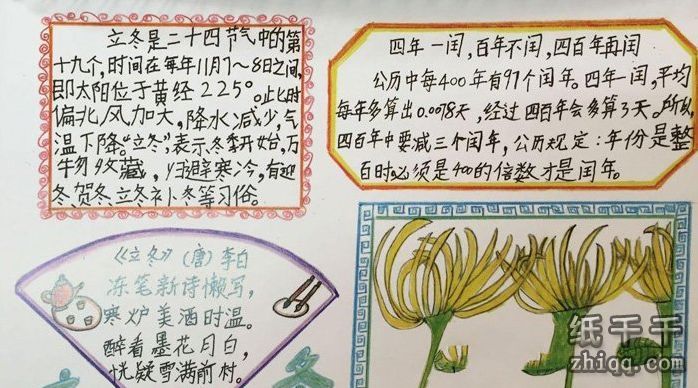 立冬是二十四节气中的第
十九个,时间在每年11月7～8日之间,
即太阳位于黄经225°。此时
偏北风加大,降水减少,气
温下降。“立冬”,表示冬季开始,万
物收藏,归避寒冷,有迎
冬、贺冬、立冬补冬等习俗。
四年一闰,百年不闰,四百年再闰
公历中每400年有97个闰年。四年一闰,平均
每年多算出0.0078天,经过四百年会多算3天。所以
四百年中要减三个闰年,公历规定:年份是整
百时必须是400的倍数才是闰年。
《立冬》(唐)李白
冻笔新诗懒写,
寒炉美酒时温。
醉看墨花月白,
恍疑雪满前村。
立
冬
纸千千
zhiqq.com